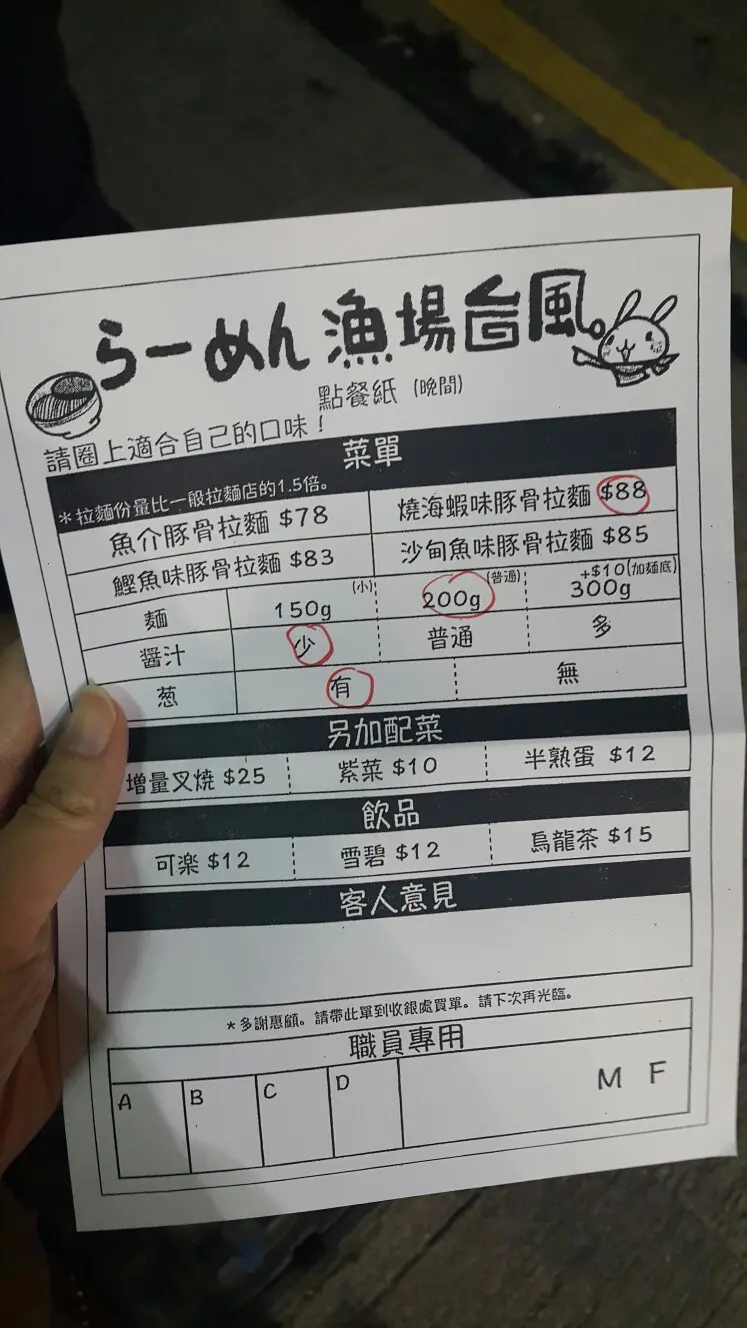 らーめん 漁場台風。
點餐紙 (晚間)
請圈上適合自己的口味！
菜單
＊拉麵份量比一般拉麵店的1.5倍。
魚介豚骨拉麵 $78
燒海蝦味豚骨拉麵 $88
鰹魚味豚骨拉麵 $83
沙甸魚味豚骨拉麵 $85
麵
150g (小)
200g (普通)
+$10(加麵底)
300g
醬汁
少
普通
多
葱
有
無
另加配菜
增量叉燒 $25
紫菜 $10
半熟蛋 $12
飲品
可楽 $12
雪碧 $12
烏龍茶 $15
客人意見
＊多謝惠顧。請帶此單到收銀處買單。請下次再光臨。
職員專用
A
B
C
D
M F